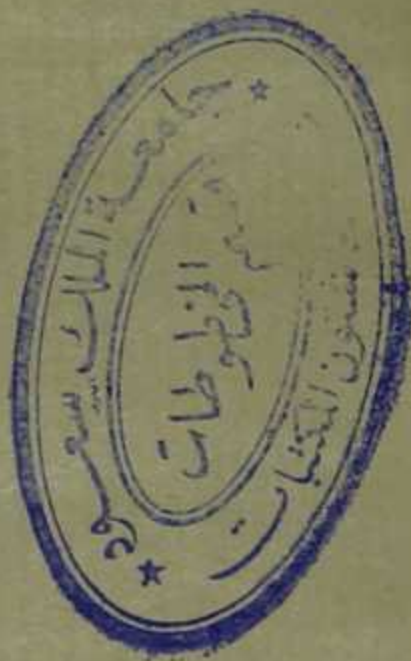 جامعة الملك سعود
قسم المخطوطات
شئون المكتبات